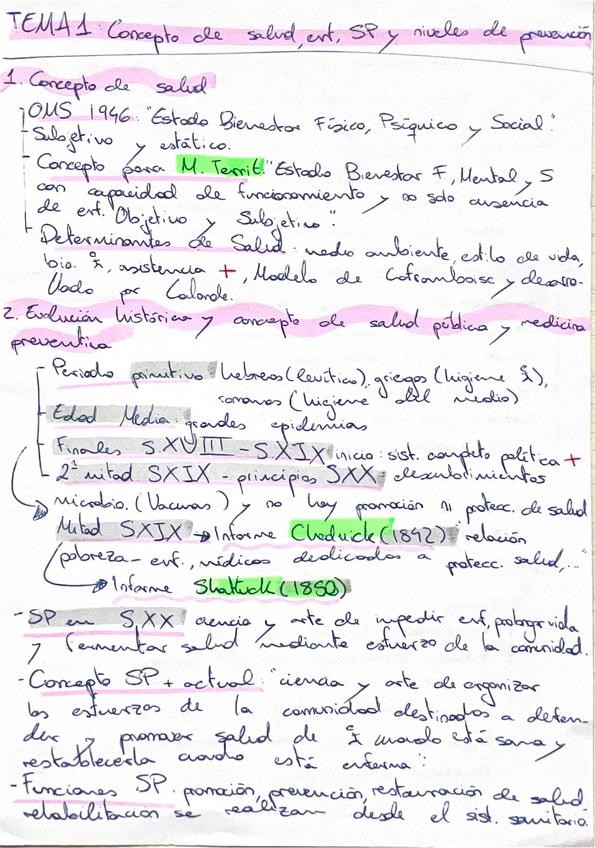 TEMA 1: Concepto de salud, enf, SP y niveles de prevención
1. Concepto de salud
OMS 1946: "Estado Bienestar Físico, Psíquico y Social".
- Subjetivo y estático.
- Concepto para M. Territ. "Estado Bienestar F, Mental y S
con capacidad de funcionamiento y no solo ausencia
de enf. Objetivo y Subjetivo".
Determinantes de Salud: medio ambiente, estilo de vida,
bio. , asistencia +, Modelo de Laframboise y desarro-
llado por Lalonde.
2. Evolución histórica y concepto de salud pública y medicina
preventiva
- Periodo primitivo: hebreos (levítico), griegos (higiene ),
romanos (higiene del medio)
- Edad Media: grandes epidemias
- Finales S.XVIII - S.XIX inicio: sist. completo política +
- 2ª mitad SXIX - principios SXX: descubrimientos
microbio. (Vacunas) y no hay promoción ni protecc. de salud
Mitad SXIX → Informe Chadwick (1842) "relación
pobreza - enf., médicos dedicados a protecc. salud,..."
→ Informe Shattuck (1850)
- SP en S.XX ciencia y arte de impedir enf, prolongar vida
y fermentar salud mediante esfuerzo de la comunidad.
- Concepto SP + actual: "ciencia y arte de organizar
los esfuerzos de la comunidad destinados a defen-
der y promover salud de cuando está sana y
restablecerla cuando está enferma".
- Funciones SP: promoción, prevención, restauración de salud,
rehabilitación se realizan desde el sist. sanitario.